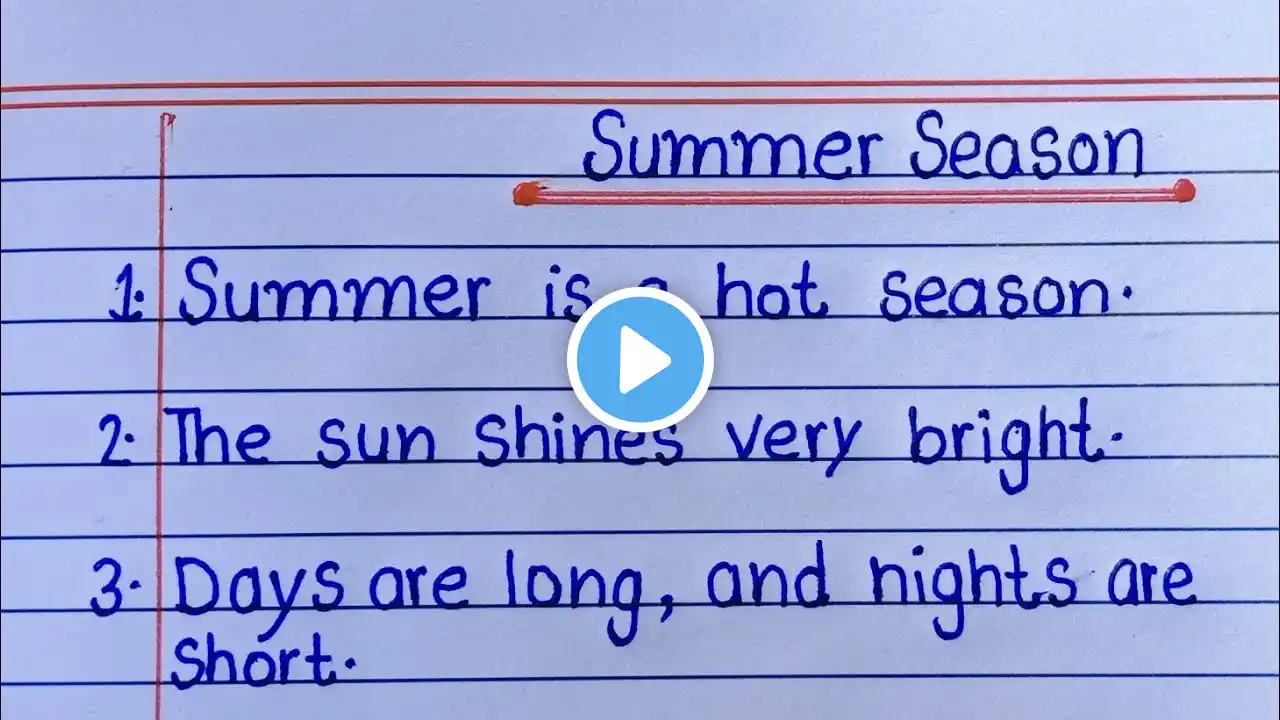 Summer Season
1. Summer is a hot season.
2. The sun shines very bright.
3. Days are long, and nights are
short.